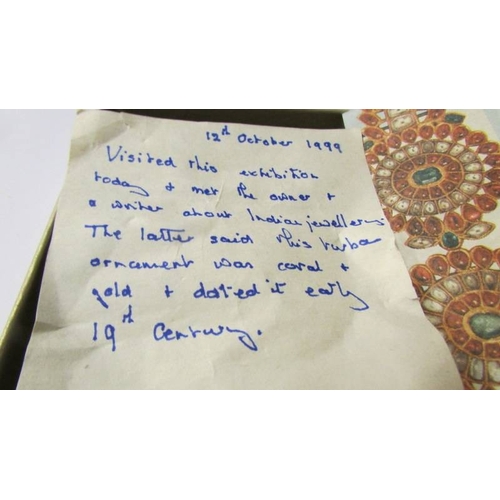 12th October 1999
Visited this exhibition
today + met the owner +
a writer about Indian jewellery.
The latter said this turban
ornament was coral +
gold + dated it early
19th Century.